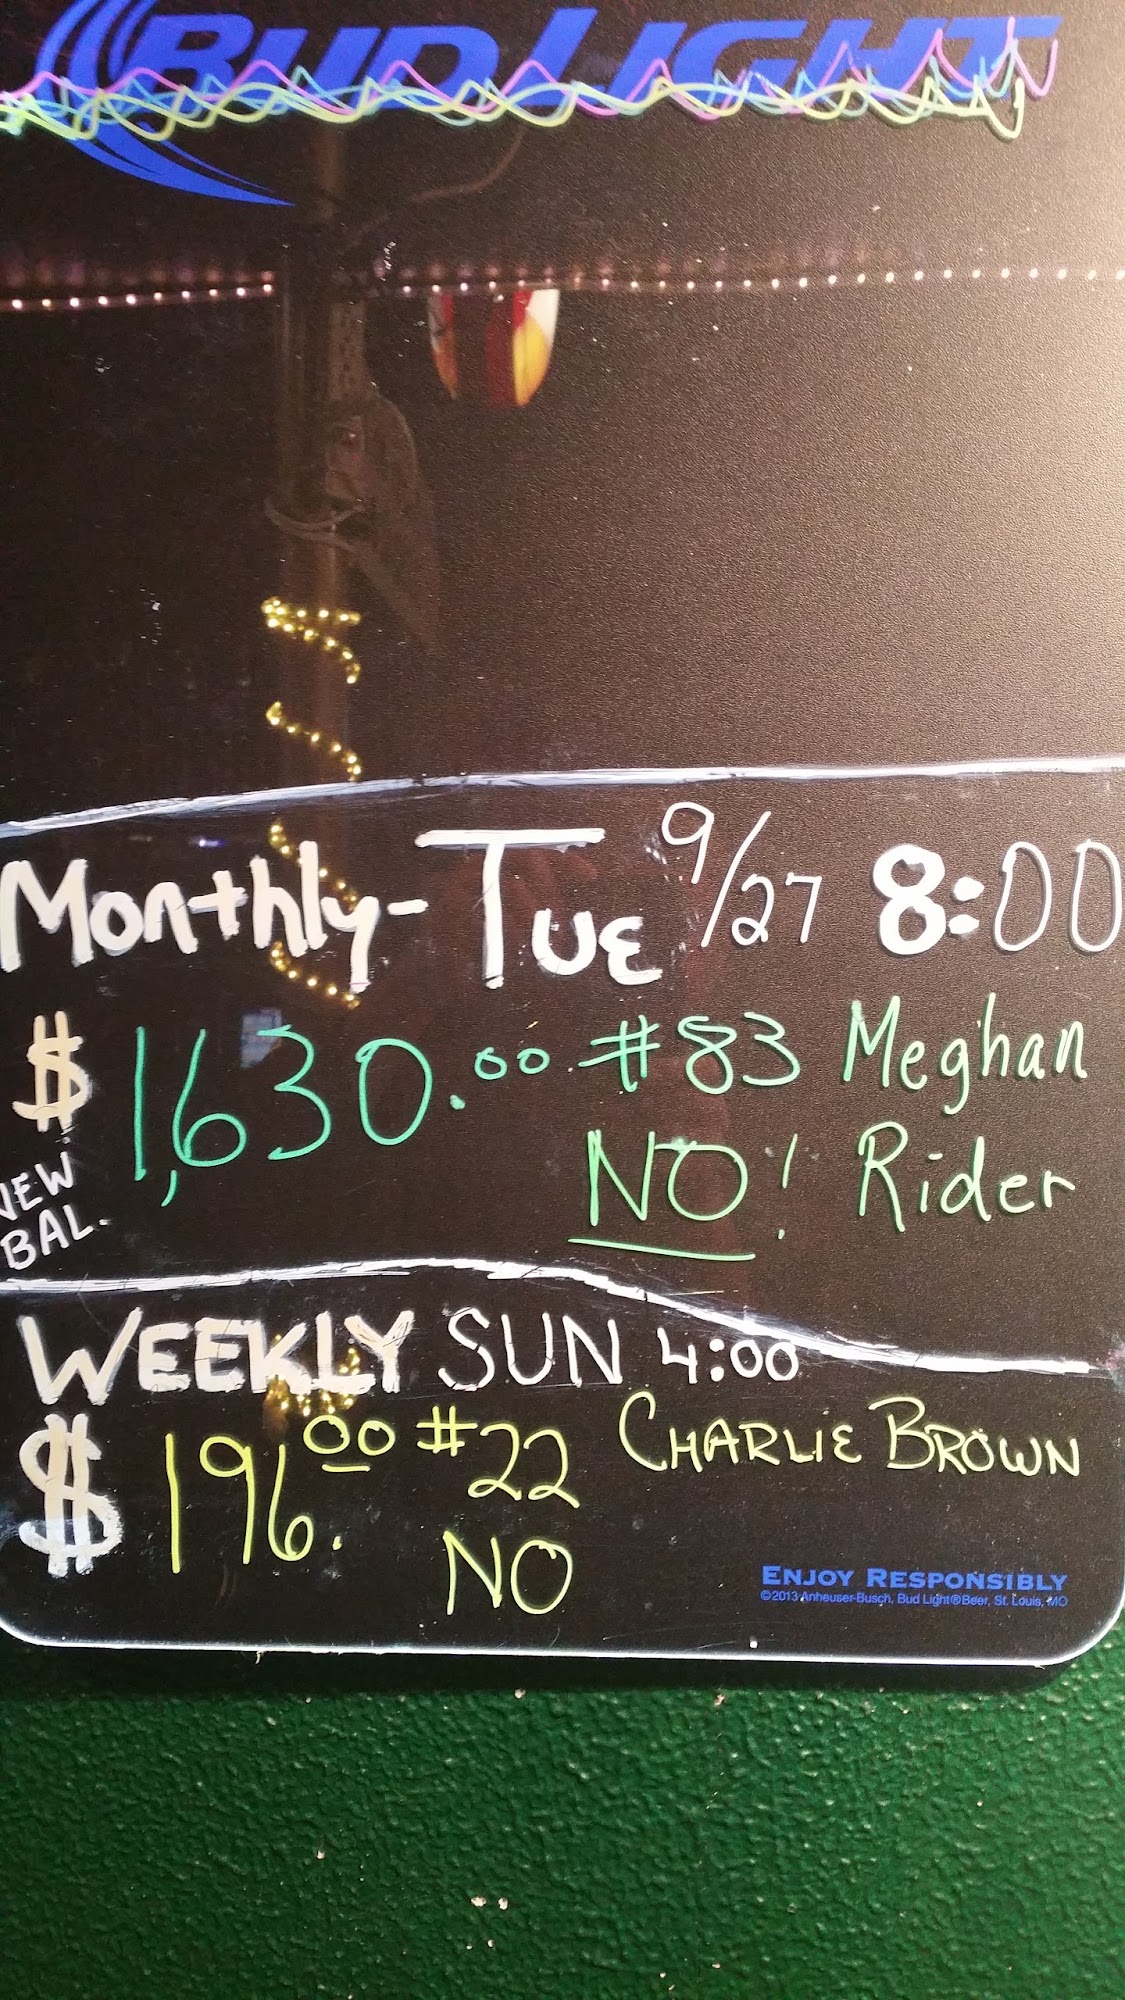 BUD LIGHT
Monthly- Tue 9/27 8:00
$ 1,630.00 #83 Meghan
NEW BAL. NO! Rider
WEEKLY SUN 4:00
$ 196.00 #22 CHARLIE BROWN
NO
ENJOY RESPONSIBLY
©2013 Anheuser-Busch, Bud Light® Beer, St. Louis, MO